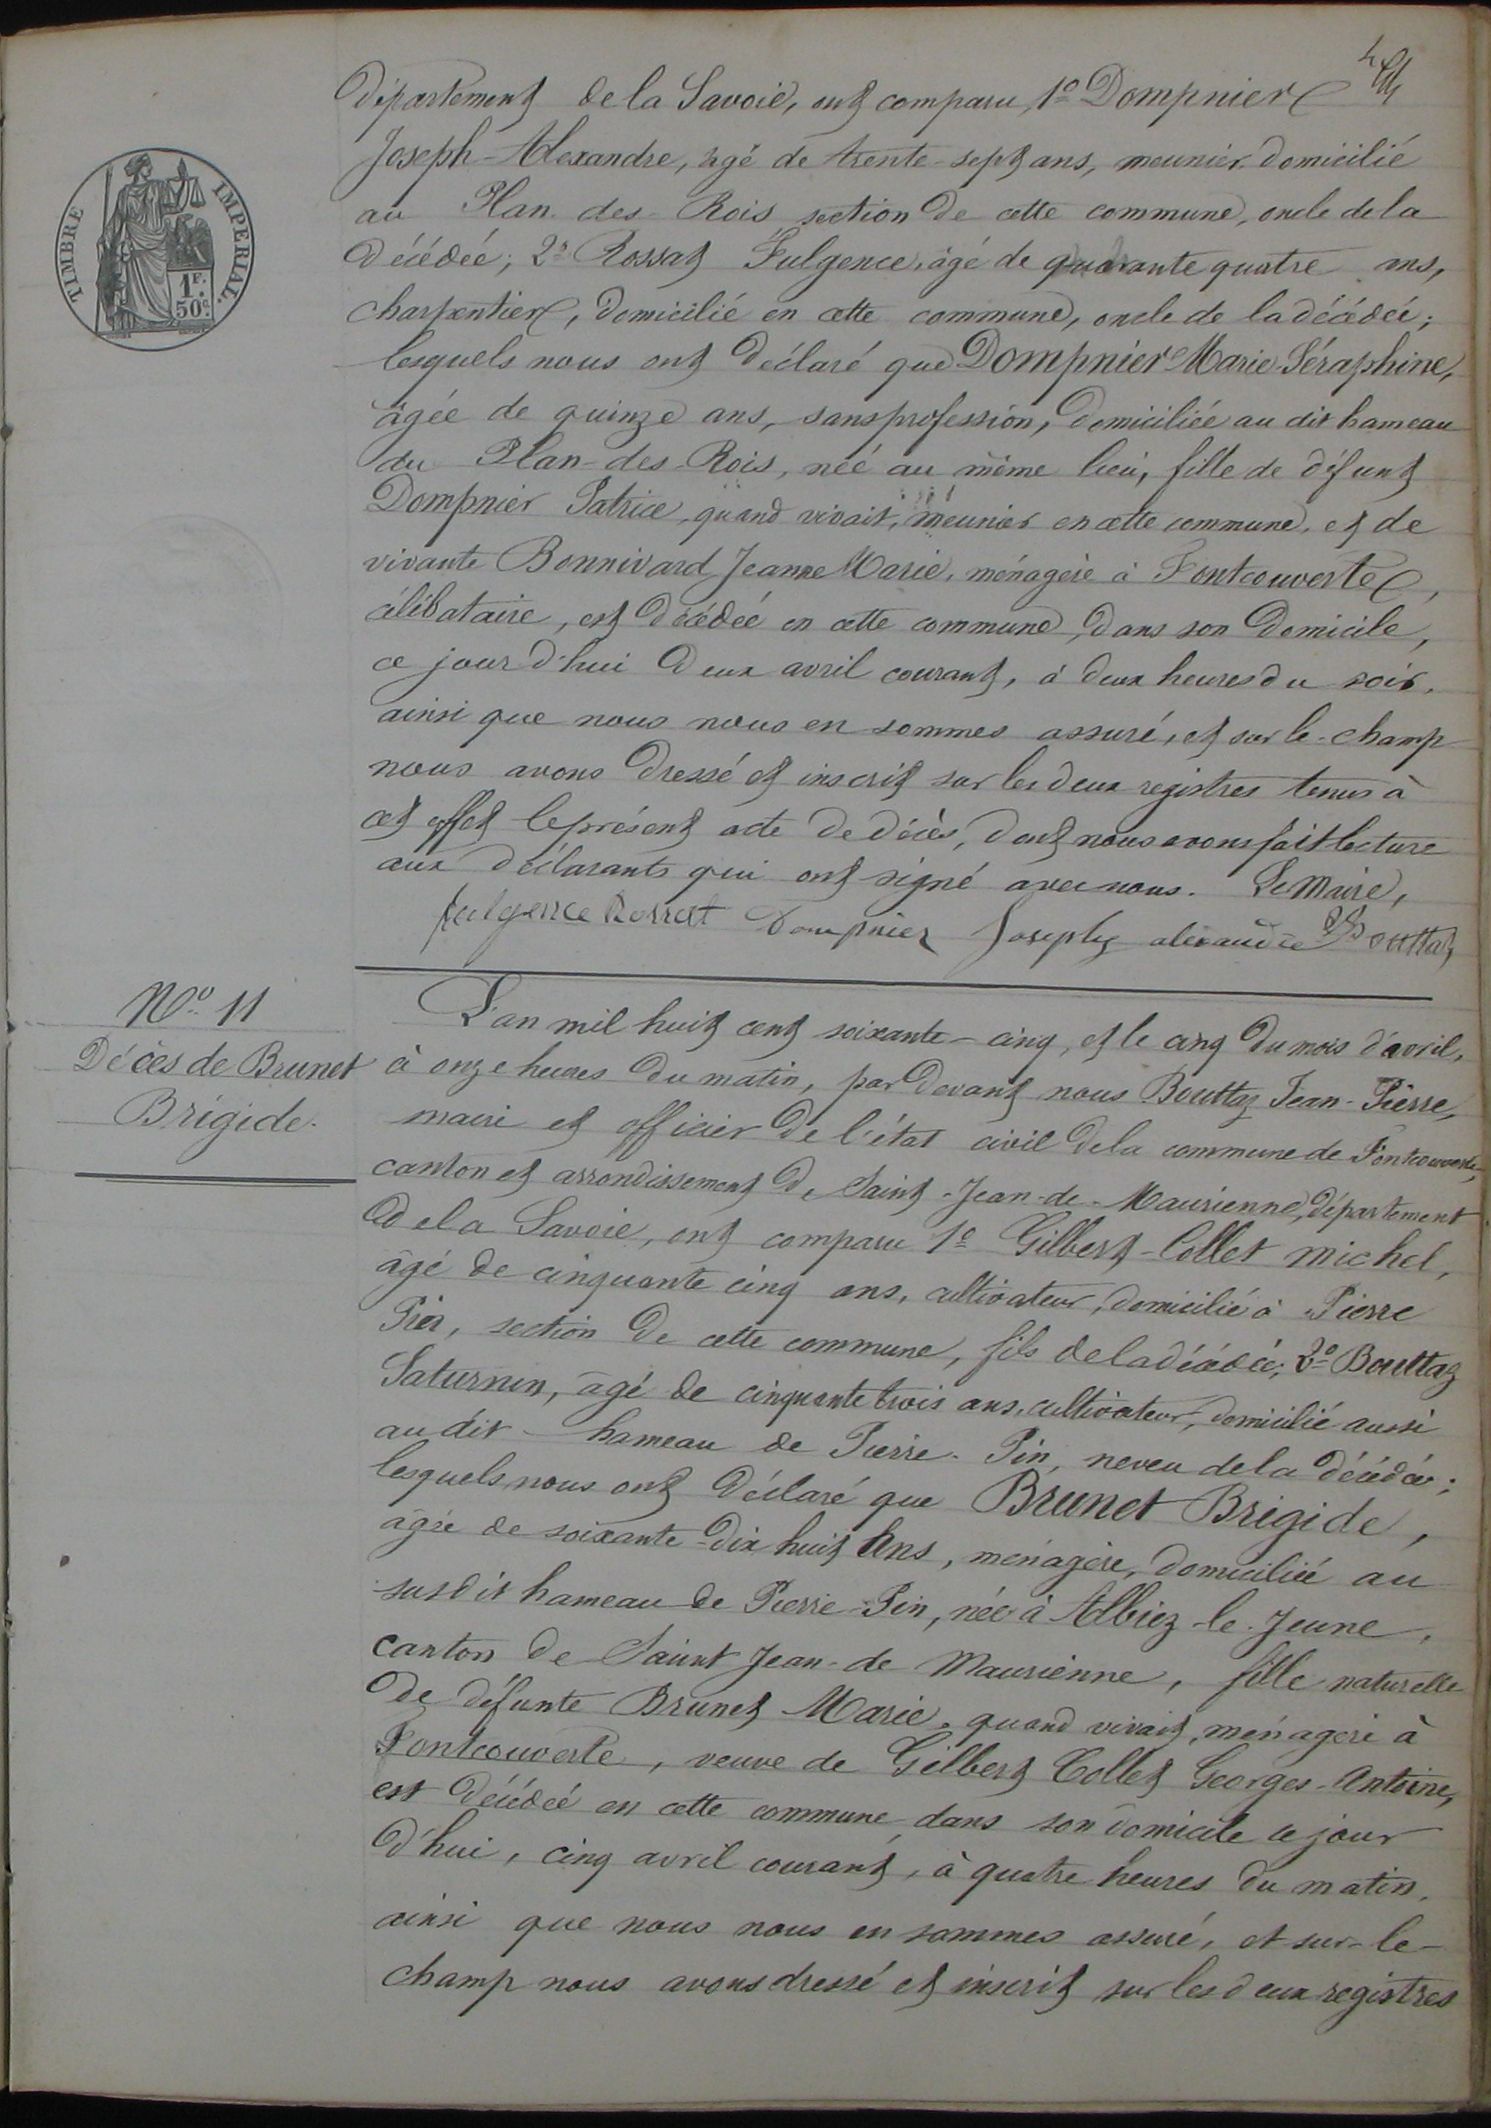 département de la Savoie, ont comparu, 1º Dompnier
Joseph-Alexandre, âgé de trente-sept ans, meunier, domicilié
au Plan-des-Rois section de cette commune, oncle de la
décédée; 2º Rossat Fulgence, âgé de quarante quatre ans,
charpentier, domicilié en cette commune, oncle de la décédée;
lesquels nous ont déclaré que Dompnier Marie-Séraphine,
âgée de quinze ans, sans profession, domiciliée au dit hameau
du Plan-des-Rois, née au même lieu, fille de défunt
Dompnier Patrice, quand vivait, meunier en cette commune, et de
vivante Bonnivard Jeanne Marie, ménagère à Fontcouverte,
célibataire, est décédée en cette commune, dans son domicile,
ce jour d'hui deux avril courant, à deux heures du soir,
ainsi que nous nous en sommes assuré, et sur-le-champ
nous avons dressé et inscrit sur les deux registres tenus à
cet effet le présent acte de décès, dont nous avons fait lecture
aux déclarants qui ont signé avec nous. Le Maire,
fulgence Rossat Dompnier Joseph alexandre Bouttaz
TIMBRE IMPERIAL.
1F.
50c.
Nº 11
Décès de Brunet
Brigide.
L'an mil huit cent soixante-cinq, et le cinq du mois d'avril,
à onze heures du matin, par devant nous Bouttaz Jean-Pierre,
maire et officier de l'état civil de la commune de Fontcouverte,
canton et arrondissement de Saint-Jean-de-Maurienne, département
de la Savoie, ont comparu 1º Gilbert-Collet Michel,
âgé de cinquante cinq ans, cultivateur, domicilié à Pierre
Pin, section de cette commune, fils de la décédée; 2º Bouttaz
Saturnin, âgé de cinquante trois ans, cultivateur, domicilié aussi
au dit hameau de Pierre-Pin, neveu de la décédée;
lesquels nous ont déclaré que Brunet Brigide,
âgée de soixante-dix huit ans, ménagère, domiciliée au
susdit hameau de Pierre-Pin, née à Albiez-le-Jeune,
canton de Saint Jean-de Maurienne, fille naturelle
de défunte Brunet Marie, quand vivait, ménagère à
Fontcouverte, veuve de Gilbert Collet Georges-Antoine,
est décédée en cette commune, dans son domicile ce jour
d'hui, cinq avril courant, à quatre heures du matin,
ainsi que nous nous en sommes assuré, et sur-le-
champ nous avons dressé et inscrit sur les deux registres